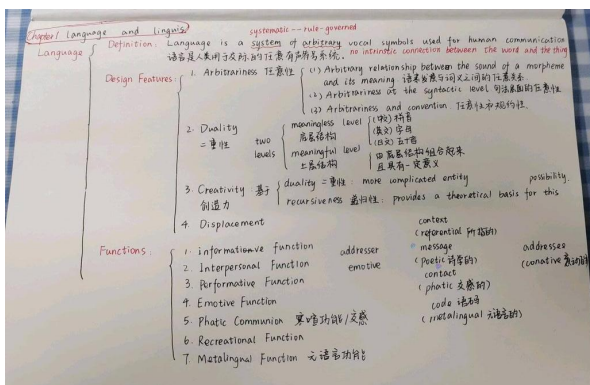 Chapter1 language and linguis
systematic -- rule-governed
Language
Definition: Language is a system of arbitrary vocal symbols used for human communication
语言是人类用于交际的任意有声符号系统. no intrinsic connection between the word and the thing
Design Features:
1. Arbitrariness 任意性
(1) Arbitrary relationship between the sound of a morpheme
and its meaning 语素发音与词义之间的任意关系.
(2) Arbitrariness at the syntactic level 句法层面的任意性
(3) Arbitrariness and convention. 任意性和规约性.
2. Duality
二重性
two
levels
meaningless level
底层结构
(中文) 拼音
(英文) 字母
(日文) 五丁音
meaningful level
上层结构
由底层结构组合起来
且具有一定意义
3. Creativity 基于
创造力
duality 二重性: more complicated entity possibility.
recursiveness 递归性: provides a theoretical basis for this
4. Displacement
Functions:
1. informative function
2. Interpersonal Function
3. Performative Function
4. Emotive Function
5. Phatic Communion 寒暄功能/交感
6. Recreational Function
7. Metalingual Function 元语言功能
addresser
emotive
context
(referential 所指的)
message
(poetic 诗学的)
contact
(phatic 交感的)
code 语码
(metalingual 元语言的)
addressee
(conative